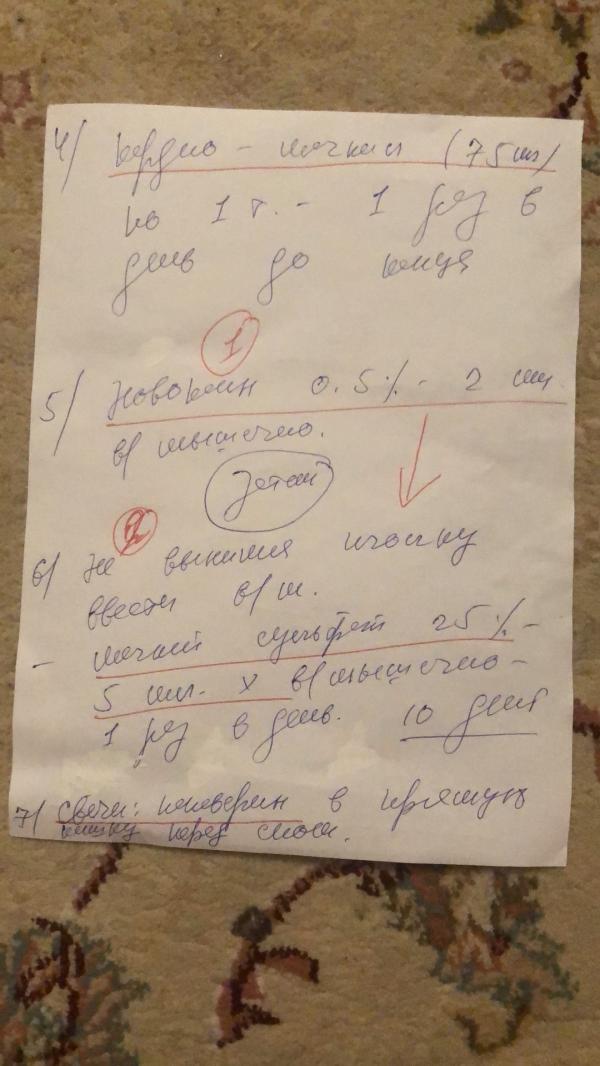 4/ кардио - магнил (75 мг)
по 1 т. - 1 раз в
день до конца
1
5/ Новокаин 0.5% - 2 мл.
в/мышечно.
затем
2
6/ Не вынимая иголку
ввести в/м.
- магний сульфат 25% -
5 мл. х в/мышечно -
1 раз в день. 10 дней
7/ свечи: папаверин в прямую
кишку перед сном.